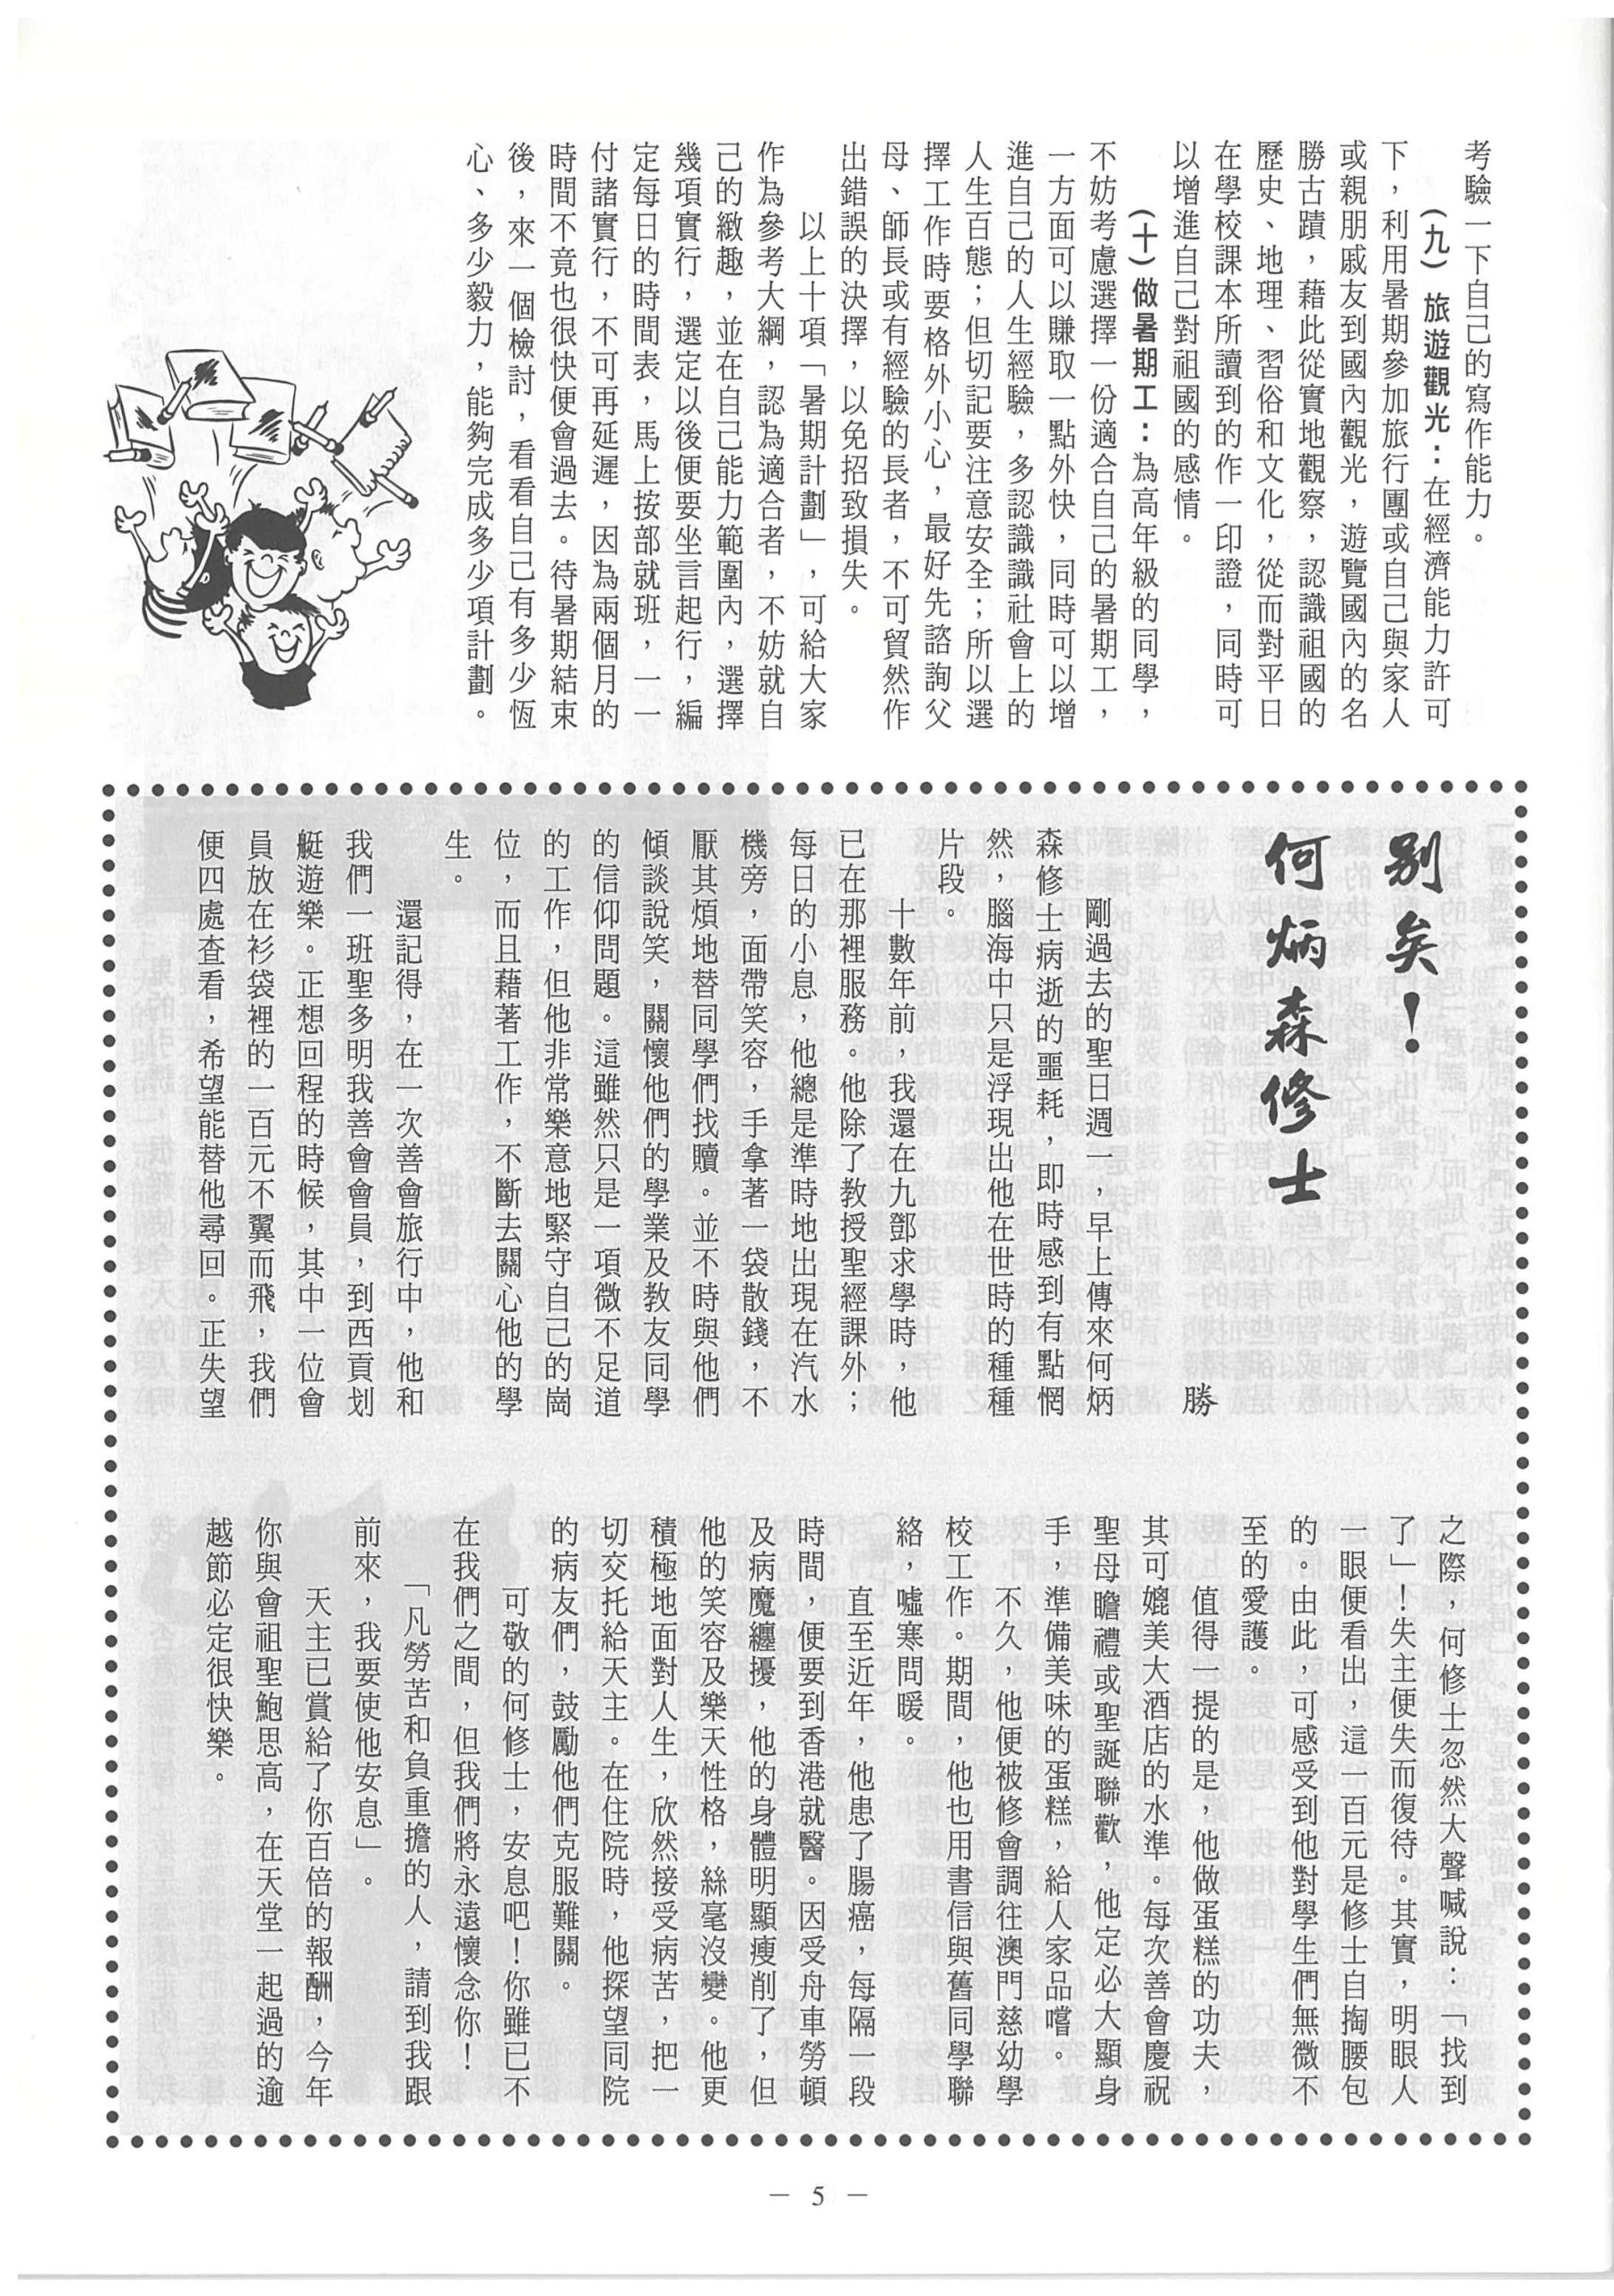 考驗一下自己的寫作能力。
(九) 旅遊觀光：在經濟能力許可
下，利用暑期參加旅行團或自己與家人
或親朋戚友到國內觀光，遊覽國內的名
勝古蹟，藉此從實地觀察，認識祖國的
歷史、地理、習俗和文化，從而對平日
在學校課本所讀到的作一印證，同時可
以增進自己對祖國的感情。
(十) 做暑期工：為高年級的同學，
不妨考慮選擇一份適合自己的暑期工，
一方面可以賺取一點外快，同時可以增
進自己的人生經驗，多認識識社會上的
人生百態；但切記要注意安全；所以選
擇工作時要格外小心，最好先諮詢父
母、師長或有經驗的長者，不可貿然作
出錯誤的決擇，以免招致損失。
以上十項「暑期計劃」，可給大家
作為參考大綱，認為適合者，不妨就自
己的緻趣，並在自己能力範圍內，選擇
幾項實行，選定以後便要坐言起行，編
定每日的時間表，馬上按部就班，一一
付諸實行，不可再延遲，因為兩個月的
時間不竟也很快便會過去。待暑期結束
後，來一個檢討，看看自己有多少恆
心、多少毅力，能夠完成多少項計劃。
別矣！
何炳森修士
勝
剛過去的聖日週一，早上傳來何炳
森修士病逝的噩耗，即時感到有點惘
然，腦海中只是浮現出他在世時的種種
片段。
十數年前，我還在九鄧求學時，他
已在那裡服務。他除了教授聖經課外；
每日的小息，他總是準時地出現在汽水
機旁，面帶笑容，手拿著一袋散錢，不
厭其煩地替同學們找贖。並不時與他們
傾談說笑，關懷他們的學業及教友同學
的信仰問題。這雖然只是一項微不足道
的工作，但他非常樂意地緊守自己的崗
位，而且藉著工作，不斷去關心他的學
生。
還記得，在一次善會旅行中，他和
我們一班聖多明我善會會員，到西貢划
艇遊樂。正想回程的時候，其中一位會
員放在衫袋裡的一百元不翼而飛，我們
便四處查看，希望能替他尋回。正失望
之際，何修士忽然大聲喊說：「找到
了」！失主便失而復待。其實，明眼人
一眼便看出，這一百元是修士自掏腰包
的。由此，可感受到他對學生們無微不
至的愛護。
值得一提的是，他做蛋糕的功夫，
其可媲美大酒店的水準。每次善會慶祝
聖母瞻禮或聖誕聯歡，他定必大顯身
手，準備美味的蛋糕，給人家品嚐。
不久，他便被修會調往澳門慈幼學
校工作。期間，他也用書信與舊同學聯
絡，噓寒問暖。
直至近年，他患了腸癌，每隔一段
時間，便要到香港就醫。因受舟車勞頓
及病魔纏擾，他的身體明顯瘦削了，但
他的笑容及樂天性格，絲毫沒變。他更
積極地面對人生，欣然接受病苦，把一
切交托給天主。在住院時，他探望同院
的病友們，鼓勵他們克服難關。
可敬的何修士，安息吧！你雖已不
在我們之間，但我們將永遠懷念你！
「凡勞苦和負重擔的人，請到我跟
前來，我要使他安息」。
天主已賞給了你百倍的報酬，今年
你與會祖聖鮑思高，在天堂一起過的逾
越節必定很快樂。
— 5 —